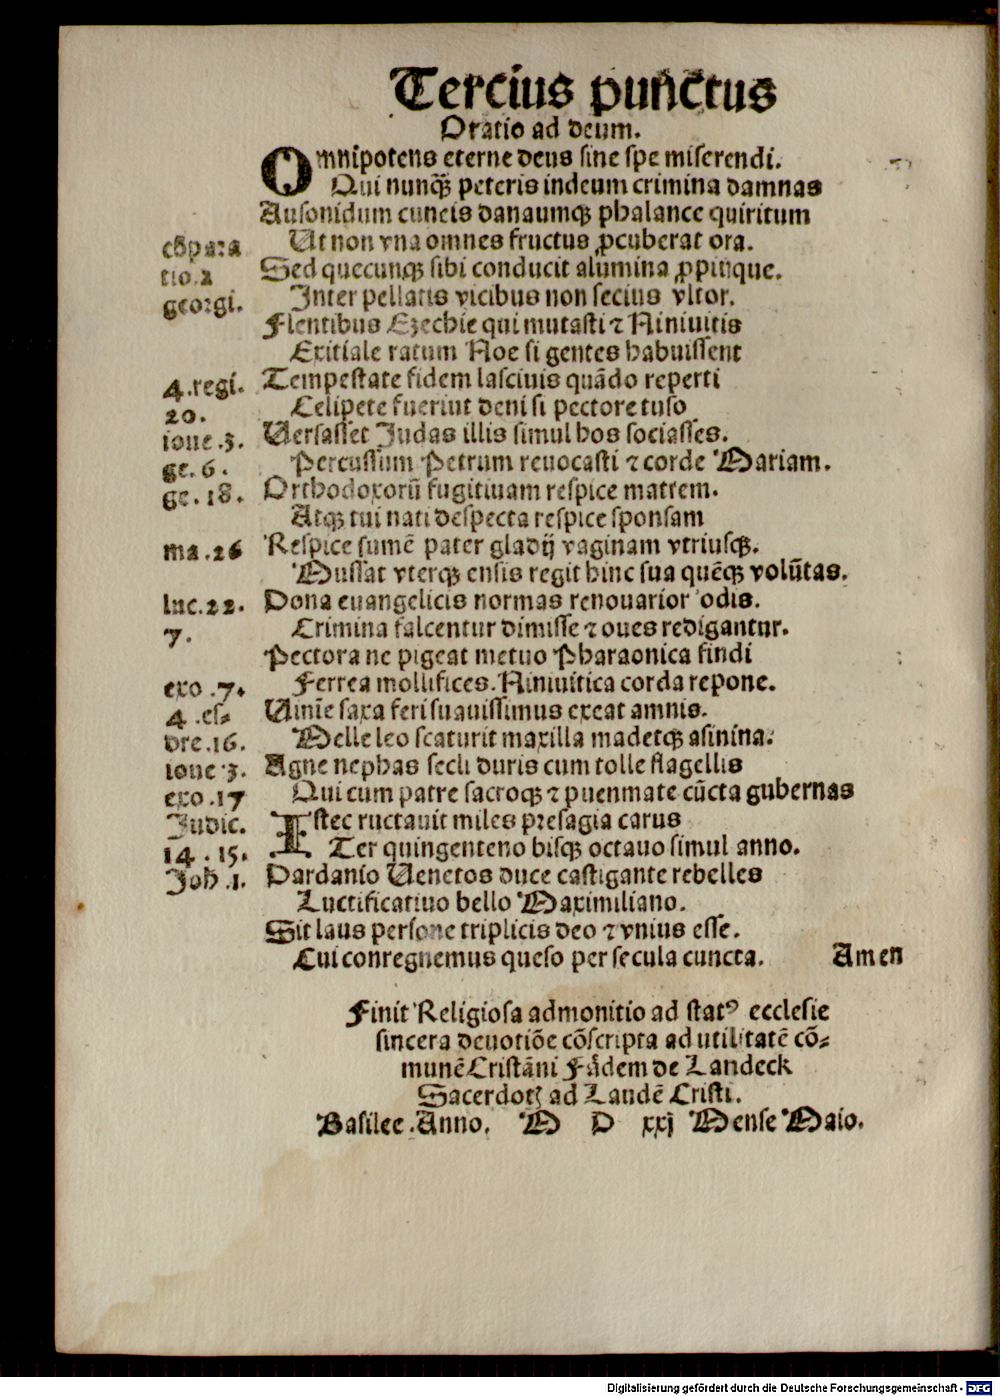 Tercius punctus
Oratio ad deum.
Omnipotens eterne deus sine spe miserendi.
Qui nunqȝ peteris indeum crimina damnas
Ausonidum cuncis danaumqȝ phalance quiritum
Ut non vna omnes fructus ꝓcuberat ora.
Sed quecunqȝ sibi conducit alumina ꝓpinque.
Inter pellatis vicibus non secius vltor.
Flentibus Ezechie qui mutasti ⁊ Niniuitis
Exitiale ratum Noe si gentes habuissent
Tempestate fidem lasciuis quādo reperti
Celipete fuerint deni si pectore tuso
Uersasset Judas illis simul hos sociasses.
Percussum Petrum reuocasti ⁊ corde Mariam.
Orthodoxorū fugitiuam respice matrem.
Atqȝ tui nati despecta respice sponsam
Respice sumē pater gladij vaginam vtriusqȝ.
Mussat vterqȝ ensis regit hinc sua quēqȝ volūtas.
Dona euangelicis normas renouarior odis.
Crimina falcentur dimisse ⁊ oues redigantur.
Pectora ne pigeat metuo Pharaonica findi
Ferrea mollifices. Niniuitica corda repone.
Uinie saxa feri suauissimus exeat amnis.
Melle leo scaturit maxilla madetqȝ asinina.
Agne nephas secli duris cum tolle flagellis
Qui cum patre sacroqȝ ⁊ pneumate cūcta gubernas
Istec ructauit miles presagia carus
Ter quingenteno bisqȝ octauo simul anno.
Dardanio Uenetos duce castigante rebelles
Luctificatiuo bello Maximiliano.
Sit laus persone triplicis deo ⁊ vnius esse.
Cui conregnemus queso per secula cuncta. Amen
cōpara
tio.2
georgi.
4.regi.
20.
ioue.3.
ge.6.
ge.18.
ma.26
luc.22.
7.
exo.7.
4.es-
dre.16.
ioue 3.
exo.17
Judic.
14.15.
Joh.1.
Finit Religiosa admonitio ad statꝰ ecclesie
sincera deuotiōe cōscripta ad utilitatē cō-
munē Cristāni de Landeck
Sacerdotȝ ad Laudē Cristi.
Basilee. Anno. M D xxj Mense Maio.
Digitalisierung gefördert durch die Deutsche Forschungsgemeinschaft - DFG